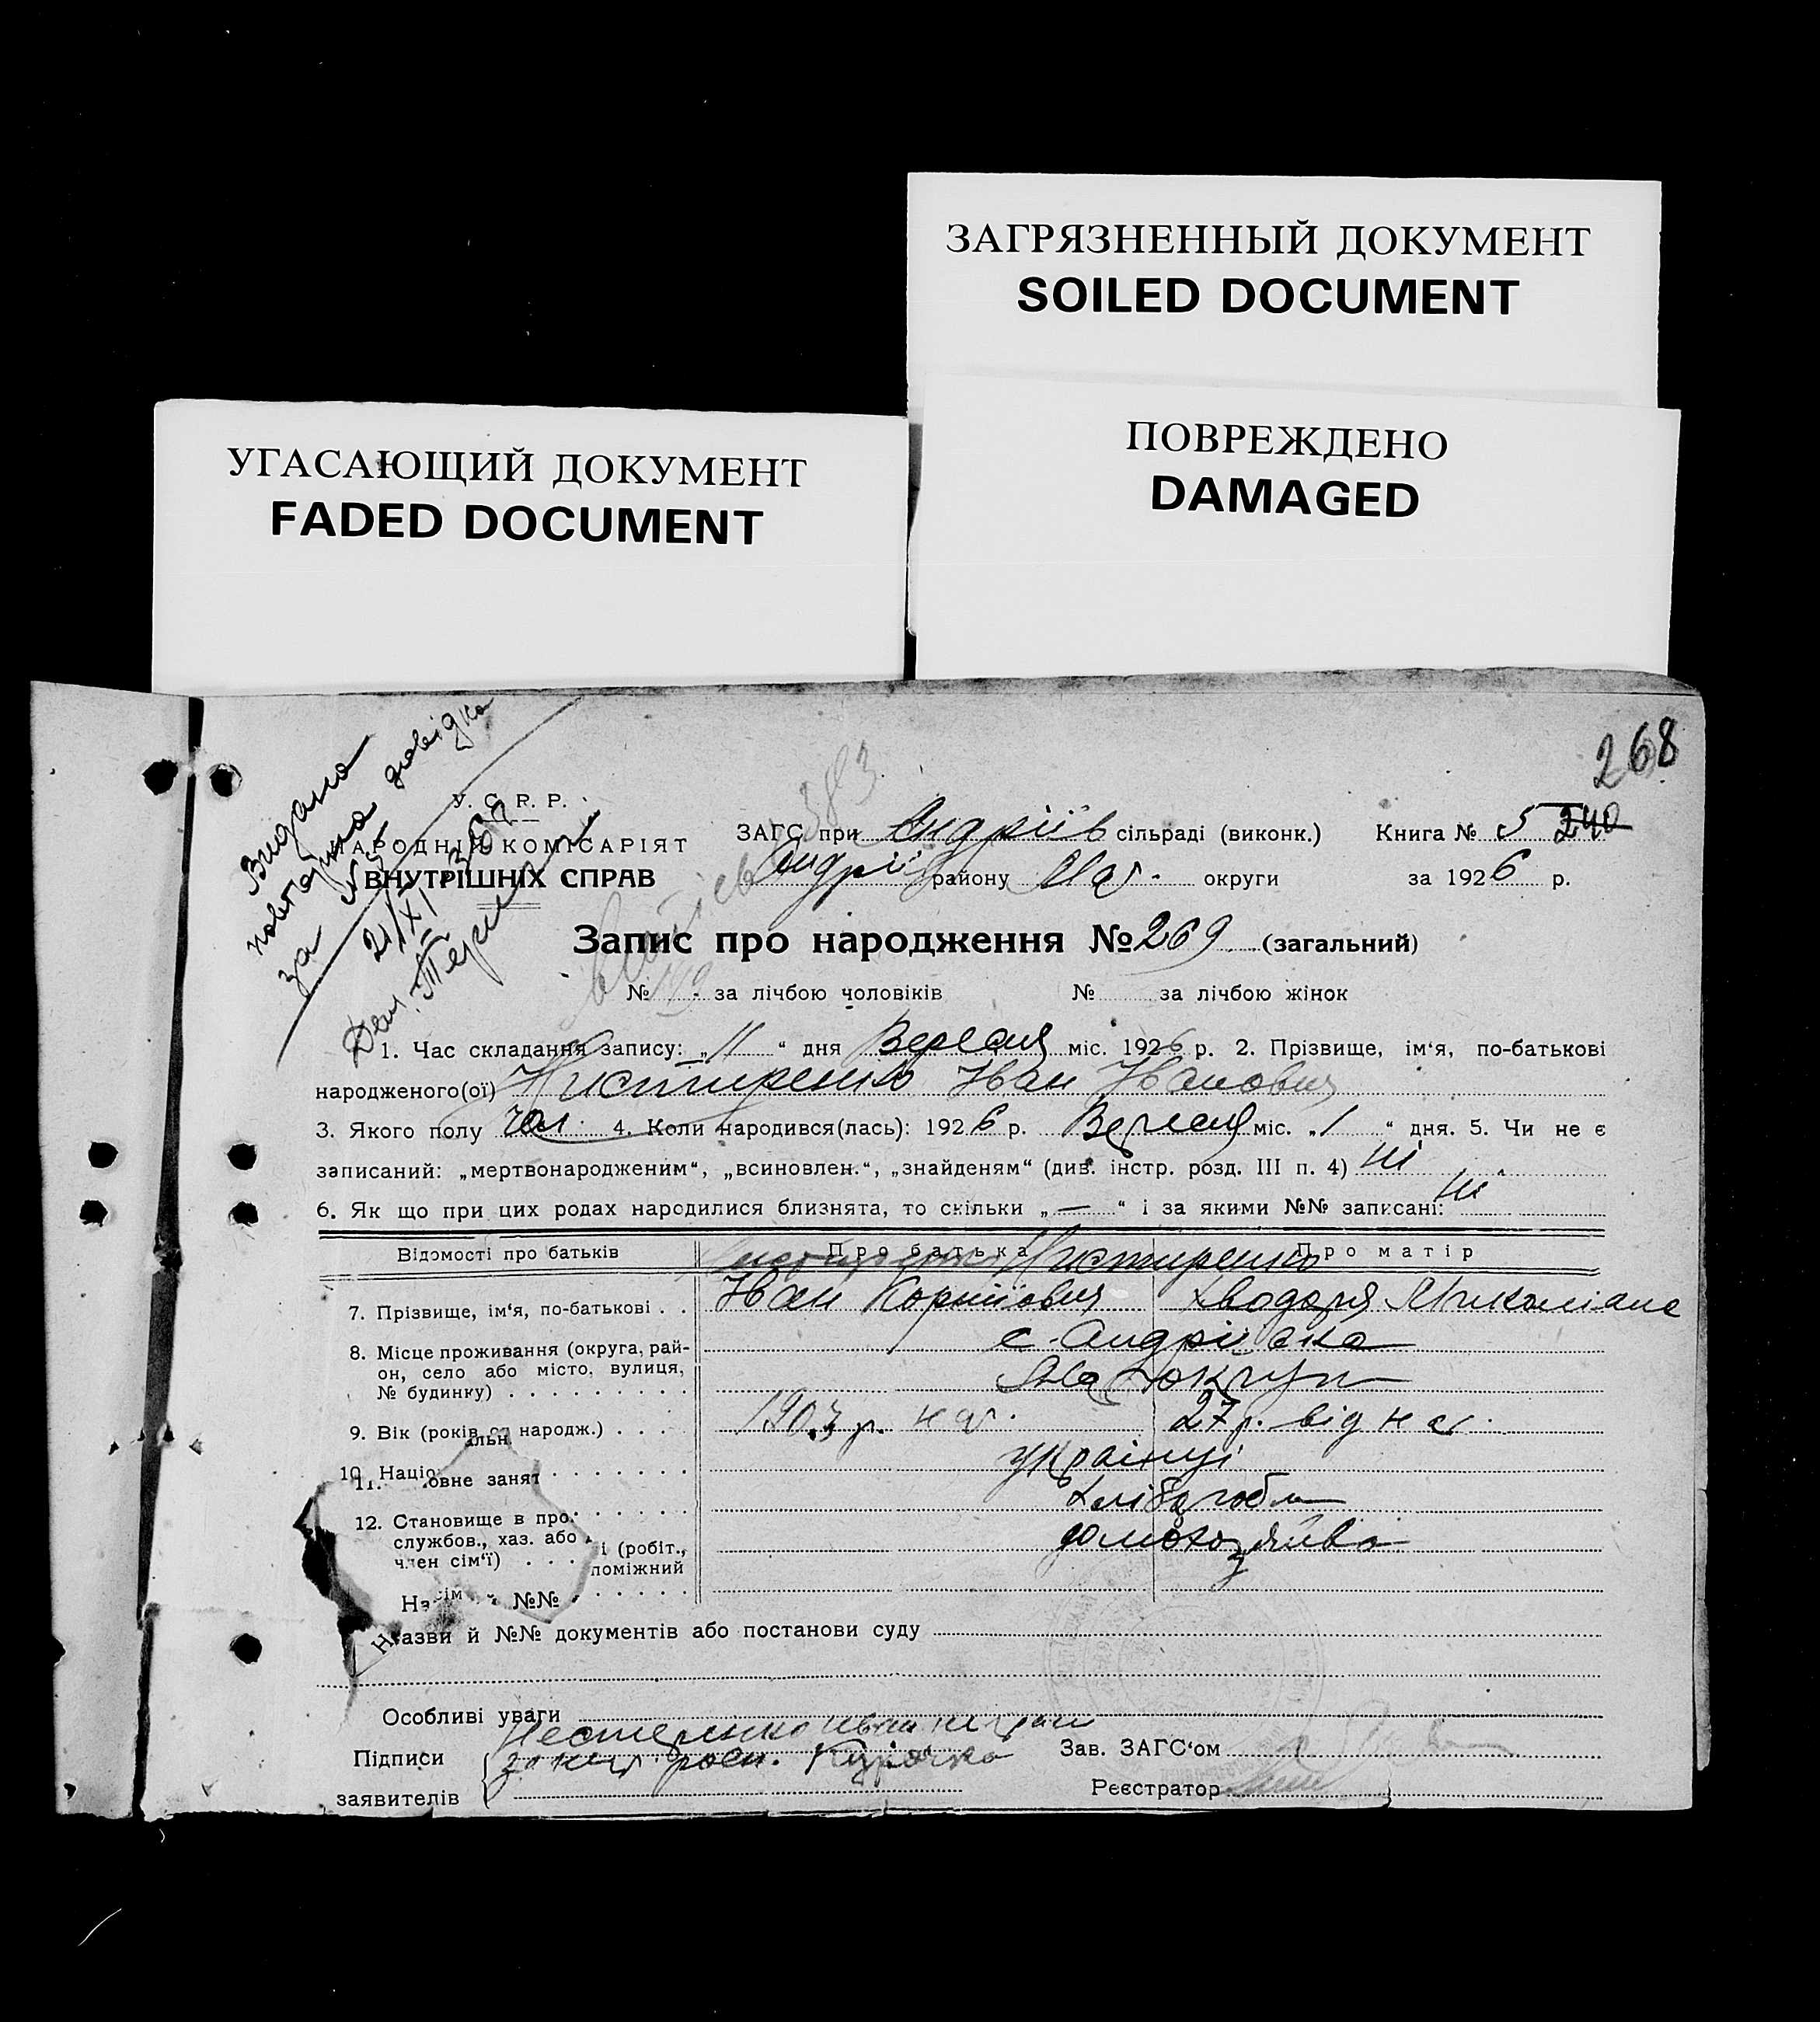 ЗАГРЯЗНЕННЫЙ ДОКУМЕНТ
SOILED DOCUMENT
УГАСАЮЩИЙ ДОКУМЕНТ
FADED DOCUMENT
ПОВРЕЖДЕНО
DAMAGED
268
Видано
повторна довідка
за №
383
У. С. Р. Р.
НАРОДНІЙ КОМІСАРІЯТ
ВНУТРІШНІХ СПРАВ
ЗАГС при Андріїв сільраді (виконк.) Книга № 5 240
Андрії району округи за 1926 р.
Запис про народження № 269 (загальний)
№ 149 за лічбою чоловіків № за лічбою жінок
1. Час складання запису: „11“ дня Вересня міс. 1926 р. 2. Прізвище, ім'я, по-батькові
народженого(ої) Нистиренко Іван Іванович
3. Якого полу чол. 4. Коли народився(лась): 1926 р. Вересня міс. „1“ дня. 5. Чи не є
записаний: „мертвонародженим“, „всиновлен.“, „знайденям“ (див. інстр. розд. III п. 4) ні
6. Як що при цих родах народилися близнята, то скільки „—“ і за якими №№ записані: ні
Відомості про батьків Про батька Про матір
Нистиренко
7. Прізвище, ім'я, по-батькові . . Іван Корнійович Хводоря
8. Місце проживання (округа, рай-
он, село або місто, вулиця,
№ будинку) . . . . . . . . .
с. Андріївка
округи
9. Вік (років од народж.) . . . . 1903 р. нар. 27 р. від нар.
10. Націо альн . . . . . . . українці
11. овне занят хлібороби
12. Становище в про
службов., хаз. або і (робіт.,
член сім'ї) . . . поміжний
домохозяйва
№№
Назви й №№ документів або постанови суду
Особливі уваги
Підписи
заявителів
Нестеренко Иван неграм
за негр росп. Курочка
Зав. ЗАГС'ом
Реєстратор